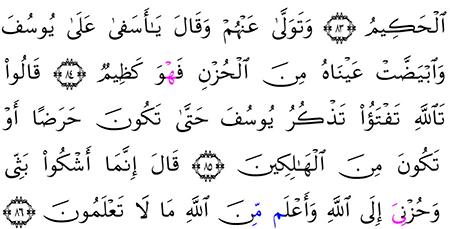 ٱلْحَكِيمُ ۝٨٣ وَتَوَلَّىٰ عَنْهُمْ وَقَالَ يَٰٓأَسَفَىٰ عَلَىٰ يُوسُفَ
وَٱبْيَضَّتْ عَيْنَاهُ مِنَ ٱلْحُزْنِ فَهْوَ كَظِيمٌ ۝٨٤ قَالُوا۟
تَٱللَّهِ تَفْتَؤُا۟ تَذْكُرُ يُوسُفَ حَتَّىٰ تَكُونَ حَرَضًا أَوْ
تَكُونَ مِنَ ٱلْهَٰلِكِينَ ۝٨٥ قَالَ إِنَّمَآ أَشْكُوا۟ بَثِّى
وَحُزْنِىَ إِلَى ٱللَّهِ وَأَعْلَم مِّنَ ٱللَّهِ مَا لَا تَعْلَمُونَ ۝٨٦